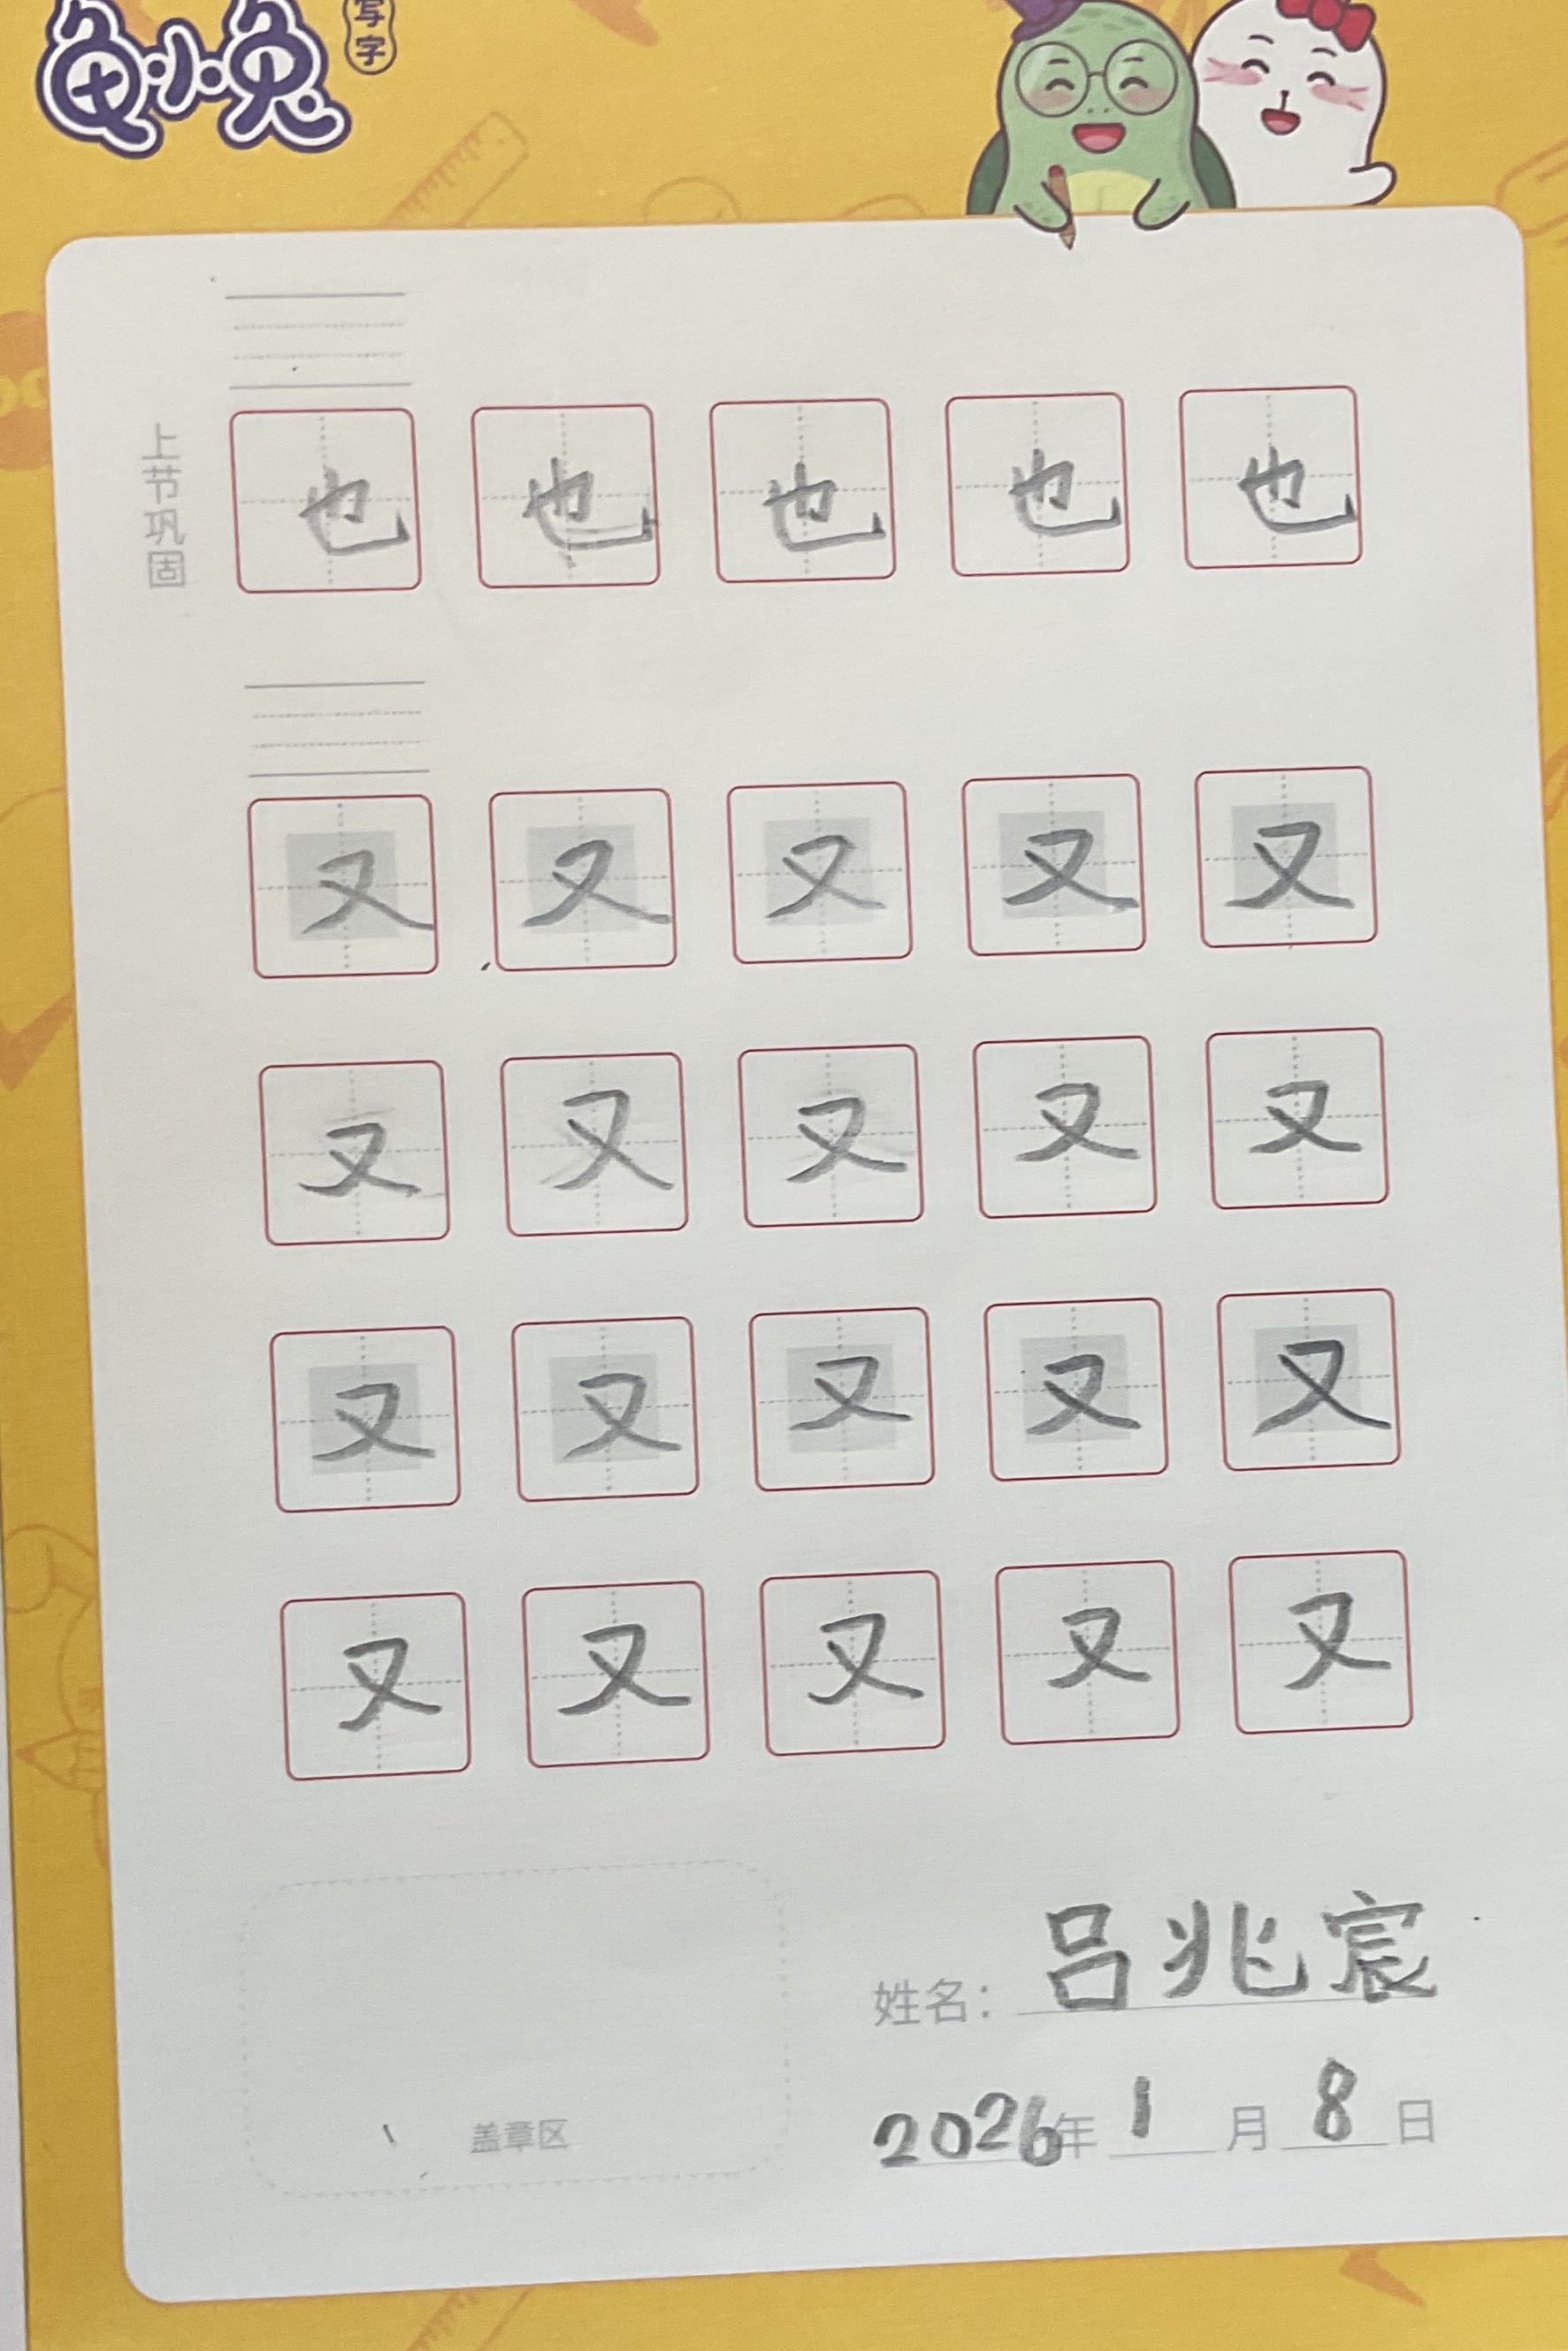 龟小兔
写字
上节巩固
也 也 也 也 也
又 又 又 又 又
又 又 又 又 又
又 又 又 又 又
又 又 又 又 又
姓名: 吕兆宸
2026年 1 月 8 日
盖章区